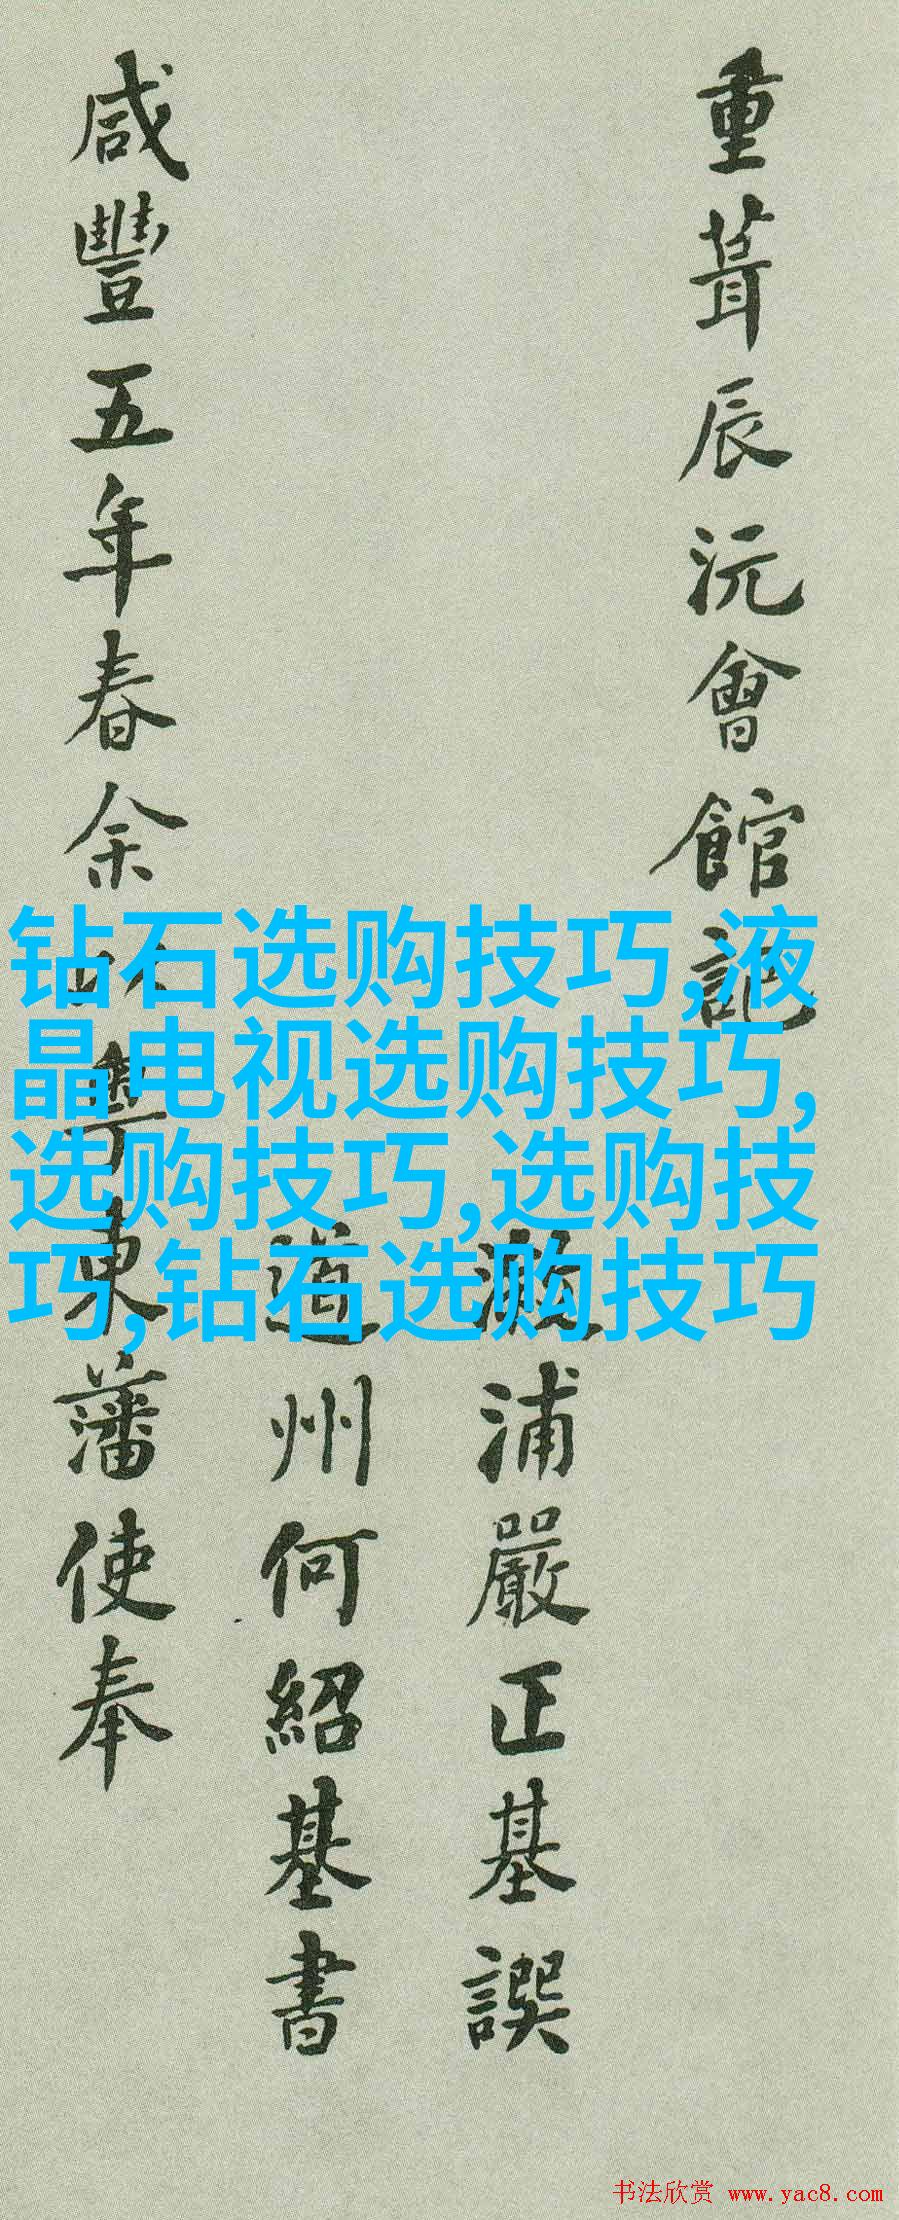 重葺辰沅會館記
漵浦嚴正基譔
道州何紹基書
咸豐五年春余以粵東藩使奉
钻石选购技巧,液
晶电视选购技巧,
选购技巧,选购技
巧,钻石选购技巧
书法欣赏 www.yac8.com